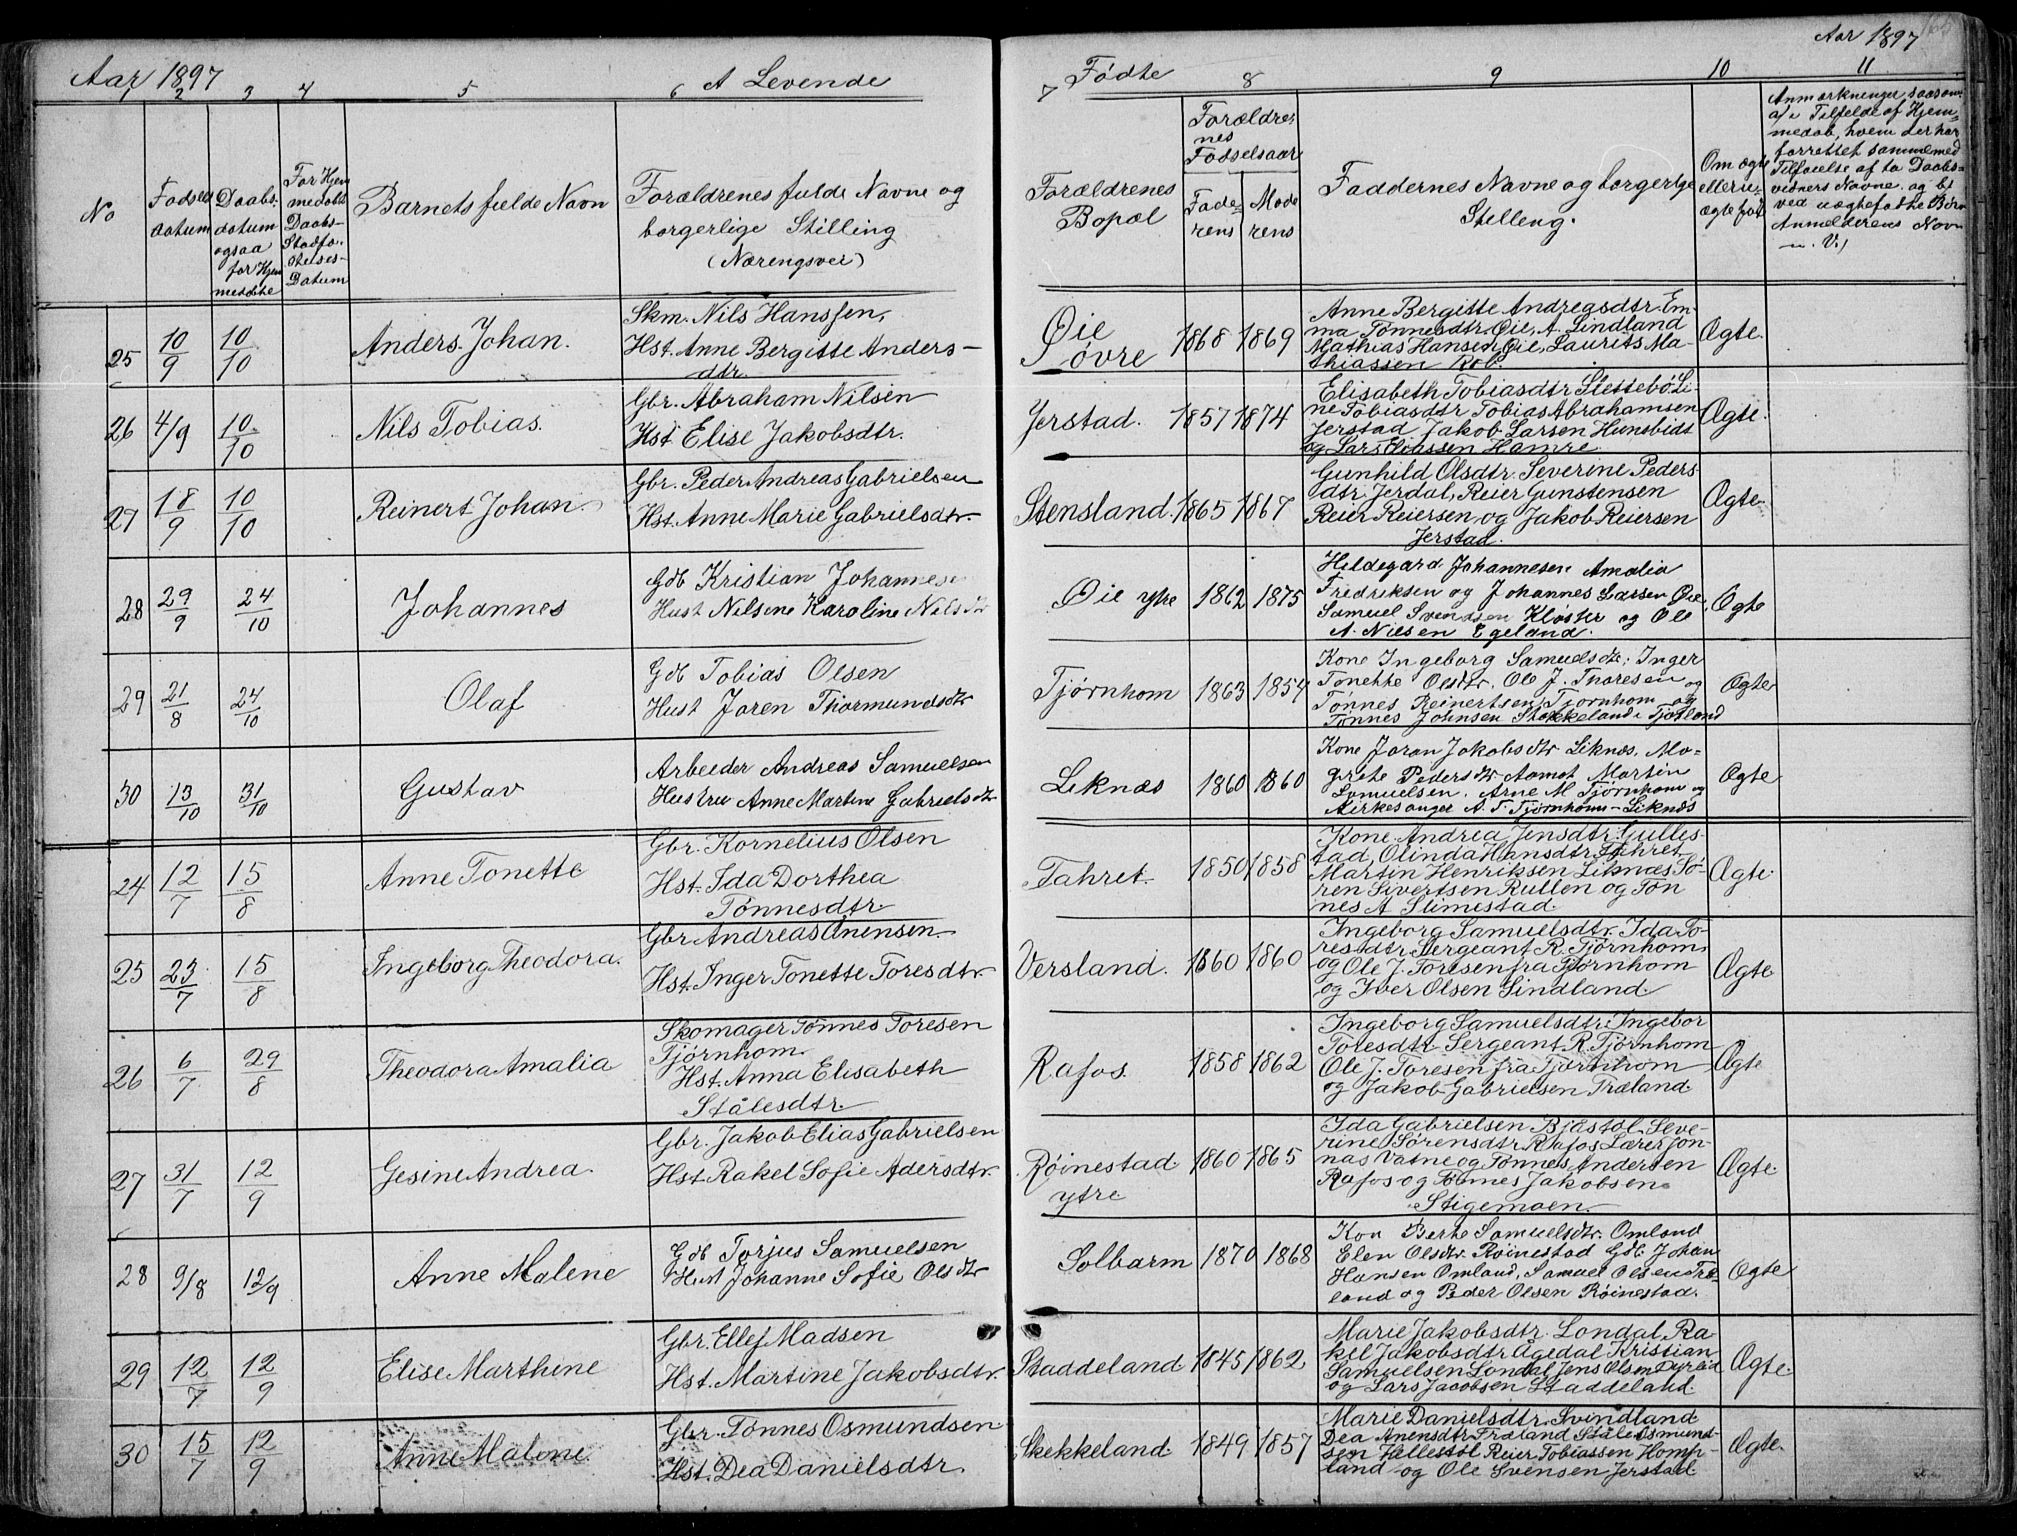 Aar 1897
A Levende
Fødte
Aar 1897
165
1 2 3 4 5 6 7 8 9 10 11
No
Fødsels
datum
Daabs-
datum
ogsaa
for Hjem
medøbte
For Hjem
medøbte
Daabs-
Stadfæ-
stelses-
Datum
Barnets fulde Navn
Forældrenes fulde Navne og
borgerlige Stilling
(Næringsvei)
Forældrenes
Bopæl
Forældre-
nes
Fødselsaar
Fade-
rens
Mode
rens
Faddernes Navne og borgerlige
Stilling.
Om ægte
eller u-
ægte født
Anmærkninger saasom
a/ i Tilfælde af Hjem-
medøb, hvem der har
forrettet samme med
Tilføielse af to Daabs-
vidners Navne. og b/
ved uægtefødte Børn
Anmelderens Navn
m. V.)
25 10/9 10/10 Anders Johan.
Skm. Nils Hanssen,
Hst. Anne Bergitte Anders-
dtr.
Øie
øvre
1868 1869
Anne Bergitte Andreasdtr Em-
ma Tønnesdtr Øie, A. Lindland
Mathias Hansen Øie, Laurits Ma-
thiassen
Ægte.
26 4/9 10/10 Nils Tobias.
Gbr. Abraham Nilsen
Hst. Elise Jakobsdtr.
Jerstad. 1857 1874
Elisabeth Tobiasdtr Slettebö. Li-
ne Tobiasdtr Tobias Abrahamsen
Jerstad Jakob Larsen Hunsbidt
og Lars Eliassen Hamre
Ægte.
27 18/9 10/10 Reinert Johan.
Gbr. Peder Andreas Gabrielsen
Hst. Anne Marie Gabrielsdtr.
Stensland. 1865 1867
Gunhild Olsdtr. Severine Peders
dtr Jerdal, Reier Gunstensen
Reier Reiersen og Jakob Reiersen
Jerstad.
Ægte.
28 29/9 24/10 Johannes
Gdb Kristian Johannesen
Hust Nilsine Karoline Nilsdtr
Øie ytre 1862 1875
Hildegard Johannesen Amalia
Fredriksen og Johannes Larsen Øie,
Samuel Svendsen Kloster og Ole
A. Nilsen Egeland.
Ægte
29 21/8 24/10 Olaf
Gdb Tobias Olsen
Hust Joren Thormundsdtr
Tjørnhom 1863 1854
Kone Ingeborg Samuelsdtr. Inger
Tonette Olsdtr. Ole J. Thoresen og
Tønnes Reinertsen Tjørnhom og
Tønnes Johnsen Stakkeland i Fjotland
Ægte
30 13/10 31/10 Gustav
Arbeider Andreas Samuelsen
Hustru Anne Martine Gabrielsdtr
Liknæs 1860 1860
Kone Joran Jakobsdtr Liknæs. Ma-
grete Pedersdtr Aamot Martin
Samuelsen. Arne M Tjørnhom og
Kirkesanger A. T. Tjørnhom - Liknæs
Ægte
24 12/7 15/8 Anne Tonette
Gbr. Kornelius Olsen
Hst. Ida Dorthea
Tönnesdtr
Fahret. 1850 1858
Kone Andrea Jensdtr. Gulles-
tad, Olinda Hansdtr Fahret
Martin Henriksen Liknæs Sö-
ren Sivertsen Rullen og Tøn
nes A Slimestad.
Ægte.
25 23/7 15/8 Ingeborg Theodora.
Gbr Andreas Anensen
Hst. Inger Tonette Toresdtr
Versland. 1860 1860
Ingeborg Samuelsdtr. Ida To-
resdtr Sergeant R. Tjørnhom
og Ole J. Toresen fra Tjørnhom
og Iver Olsen Lindland.
Ægte.
26 6/7 29/8 Theodora Amalia
Skomager Tönnes Toresen
Tjørnhom.
Hst. Anna Elisabeth
Stålesdtr.
Rafos. 1858 1862
Ingeborg Samuelsdtr. Ingebor
Toresdtr Sergeant R. Tjørnhom
Ole J. Toresen fra Tjørnhom
og Jakob Gabrielsen Træland.
Ægte
27 31/7 12/9 Gesine Andrea.
Gbr. Jakob Elias Gabrielsen
Hst. Rakel Sofie Adersdtr.
Røinestad
ytre
1860 1865
Ida Gabrielsen Bjåstøl, Seve-
rine Sörensdtr Rafos Lærer Jon-
nas Vatne og Tønnes Andersen
Rafos og Tönnes Jakobsen
Stigemoen.
Ægte.
28 9/8 12/9 Anne Malene
Gdb Torjus Samuelsen
Hust Johanne Sofie Olsdtr
Solbarm 1870 1868
Kon Berte Samuelsdtr. Omland
Elen Olsdtr. Røinestad Gdb. Johan
Hansen Omland, Samuel Olsen Træ-
land og Peder Olsen Røinestad.
Ægte
29 12/7 12/9 Elise Marthine
Gbr. Ellef Madsen
Hst. Martine Jakobsdtr.
Staddeland 1845 1862
Marie Jakobsdtr. Londal, Ra
kel Jakobsdtr Ågedal, Kristian
Samuelsen Londal, Jens Olsen Dyrlid
og Lars Jacobsen Staddeland.
Ægte.
30 15/7 12/9 Anne Malene.
Gbr. Tönnes Osmundsen
Hst. Dea Danielsdtr.
Skekkeland. 1849 1857
Marie Danielsdtr. Svindland
Dea Anensdtr Fræland Ståle Osmund-
sen Hellestöl Reier Tobiassen Homp-
land og Ole Svensen Jerstad.
Ægte.